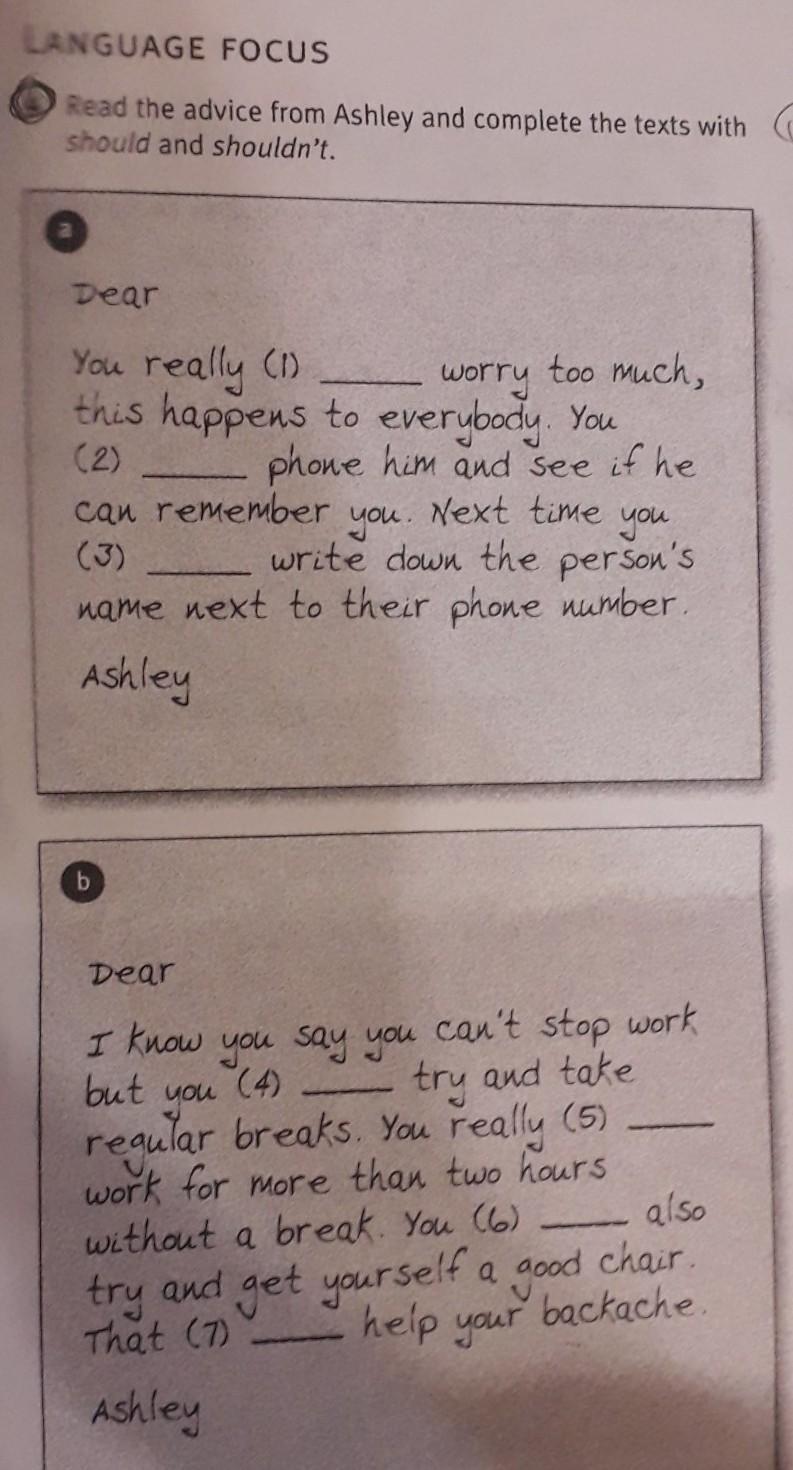 LANGUAGE FOCUS
Read the advice from Ashley and complete the texts with
should and shouldn't.
a
Dear
You really (1) ______ worry too much,
this happens to everybody. You
(2) ______ phone him and see if he
can remember you. Next time you
(3) ______ write down the person's
name next to their phone number.
Ashley
b
Dear
I know you say you can't stop work
but you (4) ______ try and take
regular breaks. You really (5) ______
work for more than two hours
without a break. You (6) ______ also
try and get yourself a good chair.
That (7) ______ help your backache.
Ashley